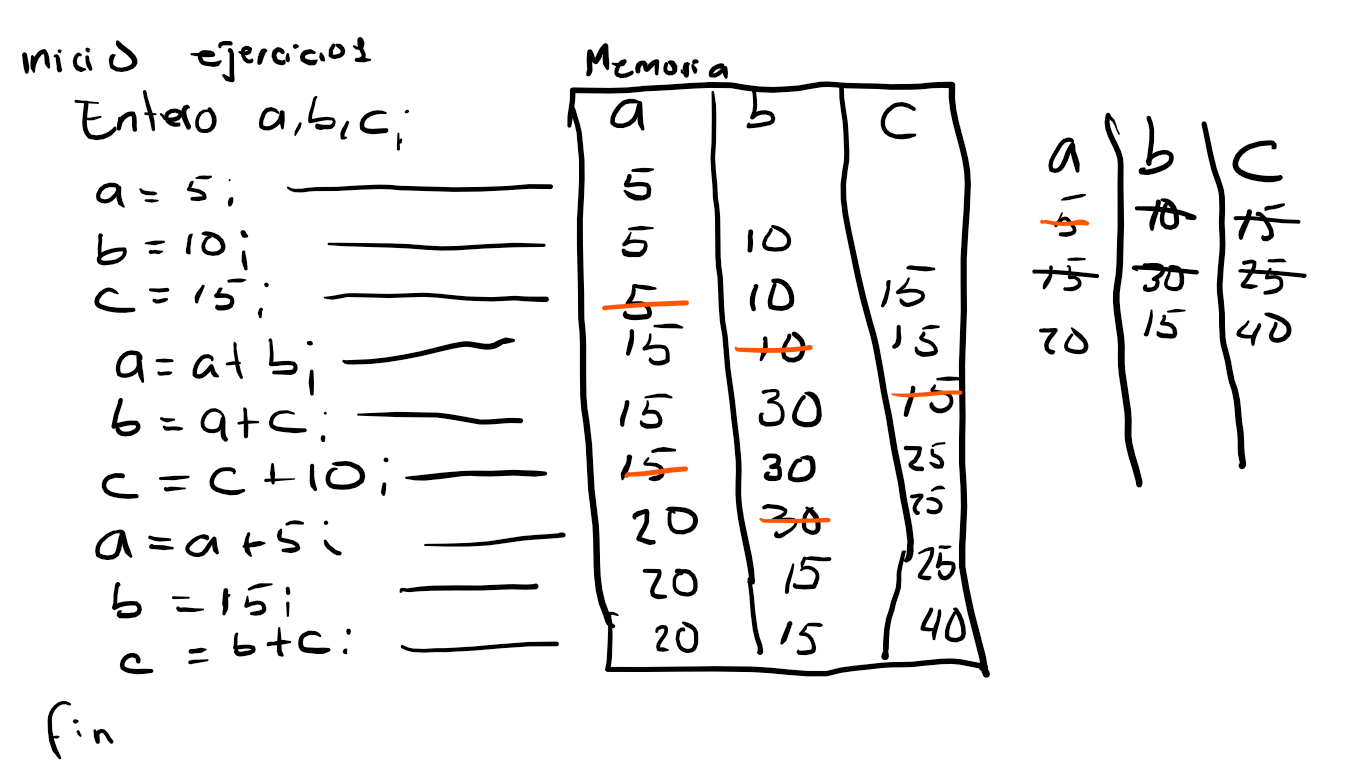 inicio ejercicio1
Entero a,b,c;
a = 5;
b = 10;
c = 15;
a = a + b;
b = a + c;
c = c + 10;
a = a + 5;
b = 15;
c = b + c;
fin
Memoria
a b c
5
5 10
5 10 15
15 10 15
15 30 15
15 30 25
20 30 25
20 15 25
20 15 40
a b c
5 10 15
15 30 25
20 15 40